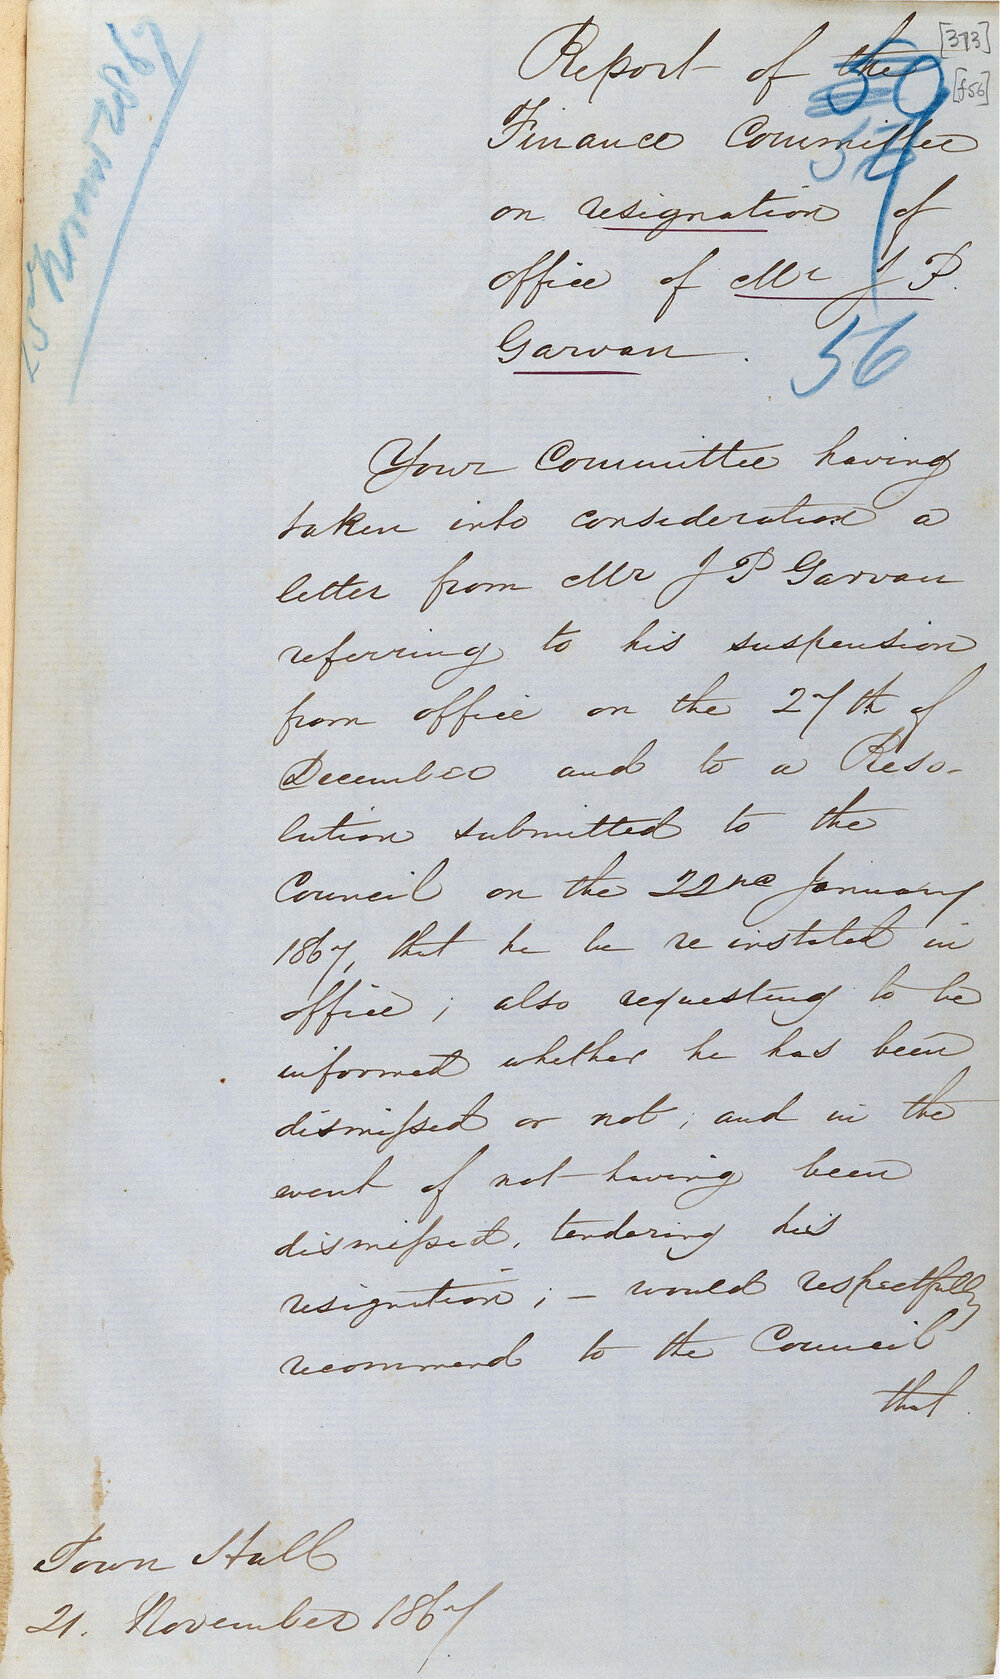 [373]
[f56]
59
56
Report of the
Finance Committee
on resignation of
office of Mr J P.
Garvan.
56
Your Committee having
taken into consideration a
letter from Mr J P Garvan
referring to his suspension
from office on the 27th of
December and to a Reso-
lution submitted to the
Council on the 22nd January
1867, that he be reinstated in
office; also requesting to be
informed whether he has been
dismissed or not; and in the
event of not having been
dismissed, tendering his
resignation; – would respectfully
recommend to the Council
that
Town Hall
21. November 1867